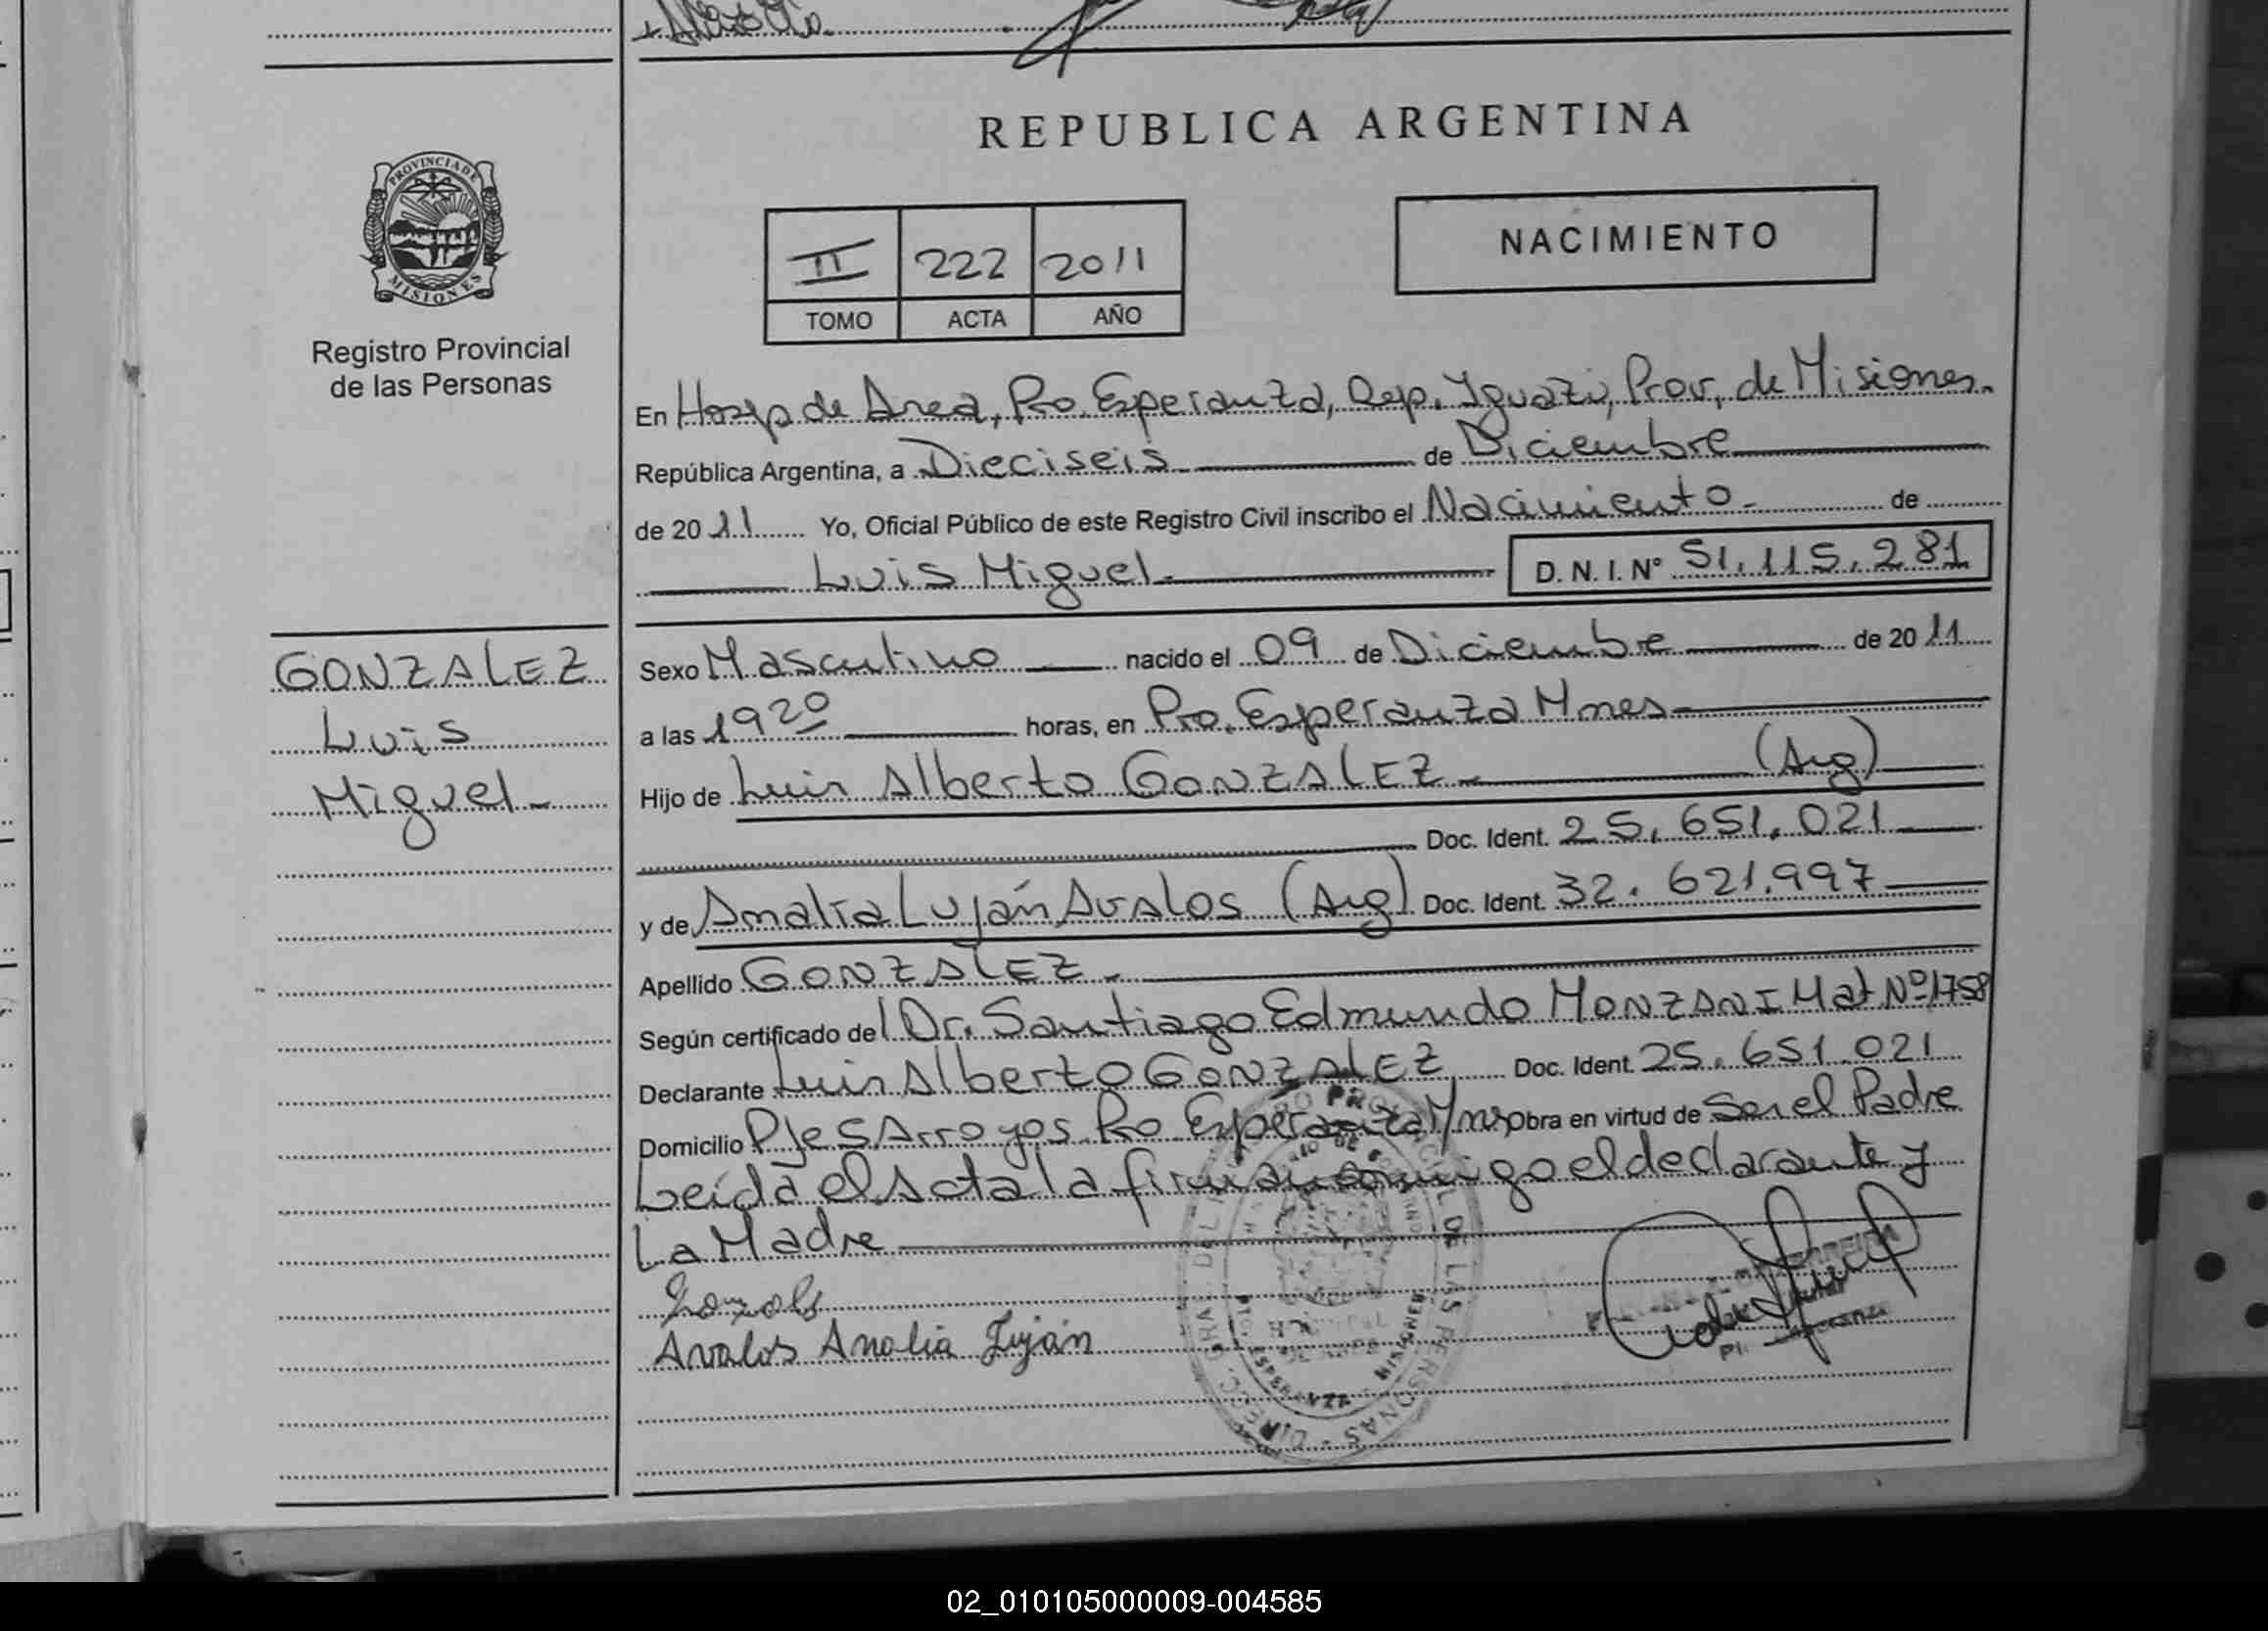 REPUBLICA ARGENTINA
PROVINCIA DE
MISIONES
Registro Provincial
de las Personas
II 222 2011
TOMO ACTA AÑO
NACIMIENTO
En Hosp de Area, Pto. Esperanza, Dep. Iguazú, Prov. de Misiones.
República Argentina, a Dieciseis de Diciembre
de 2011 Yo, Oficial Público de este Registro Civil inscribo el Nacimiento de
Luis Miguel
D. N. I. Nº 51.115.281
GONZALEZ
Luis
Miguel
Sexo Masculino nacido el 09 de Diciembre de 2011
a las 1920 horas, en Pto. Esperanza Mnes
Hijo de Luis Alberto GONZALEZ (Arg)
Doc. Ident. 25.651.021
y de Analia Luján AVALOS (Arg) Doc. Ident. 32.621.997
Apellido GONZALEZ
Según certificado del Dr. Santiago Edmundo MONZANI Mat Nº 1758
Declarante Luis Alberto GONZALEZ Doc. Ident. 25.651.021
Domicilio Pje 5 Arroyos Pto Esperanza Mnes Obra en virtud de Ser el Padre
Leída el Acta la firman conmigo el declarante y
La Madre
Avalos Analia Luján
02_010105000009-004585